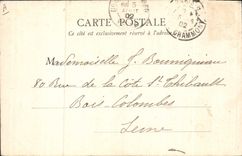 CARTE POSTALE
Ce côté est exclusivement réservé à l'adresse
02
GRAMMONT
Mademoiselle J. Bournigniau
80 Rue de la Côte St Thibault
Bois-Colombes
Seine